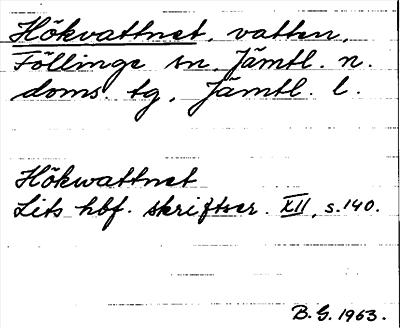 Hökvattnet, vatten,
Föllinge sn, Jämtl. n.
doms. tg, Jämtl. l.
Hökwattnet
Lits hbf. skriftser. XII, s.140.
B. G. 1963.